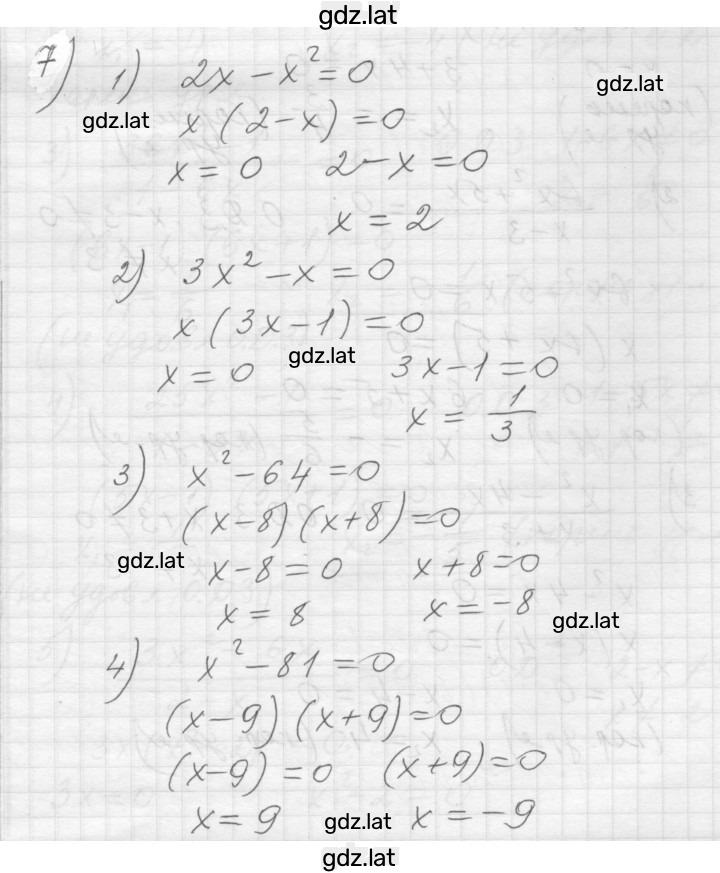 gdz.lat
7) 1) 2x - x² = 0
gdz.lat
gdz.lat
x (2 - x) = 0
x = 0 2 - x = 0
x = 2
2) 3x² - x = 0
x (3x - 1) = 0
gdz.lat
x = 0 3x - 1 = 0
x = 1/3
3) x² - 64 = 0
(x - 8) (x + 8) = 0
gdz.lat
x - 8 = 0 x + 8 = 0
x = 8 x = -8
gdz.lat
4) x² - 81 = 0
(x - 9) (x + 9) = 0
(x - 9) = 0 (x + 9) = 0
x = 9 gdz.lat x = -9
gdz.lat